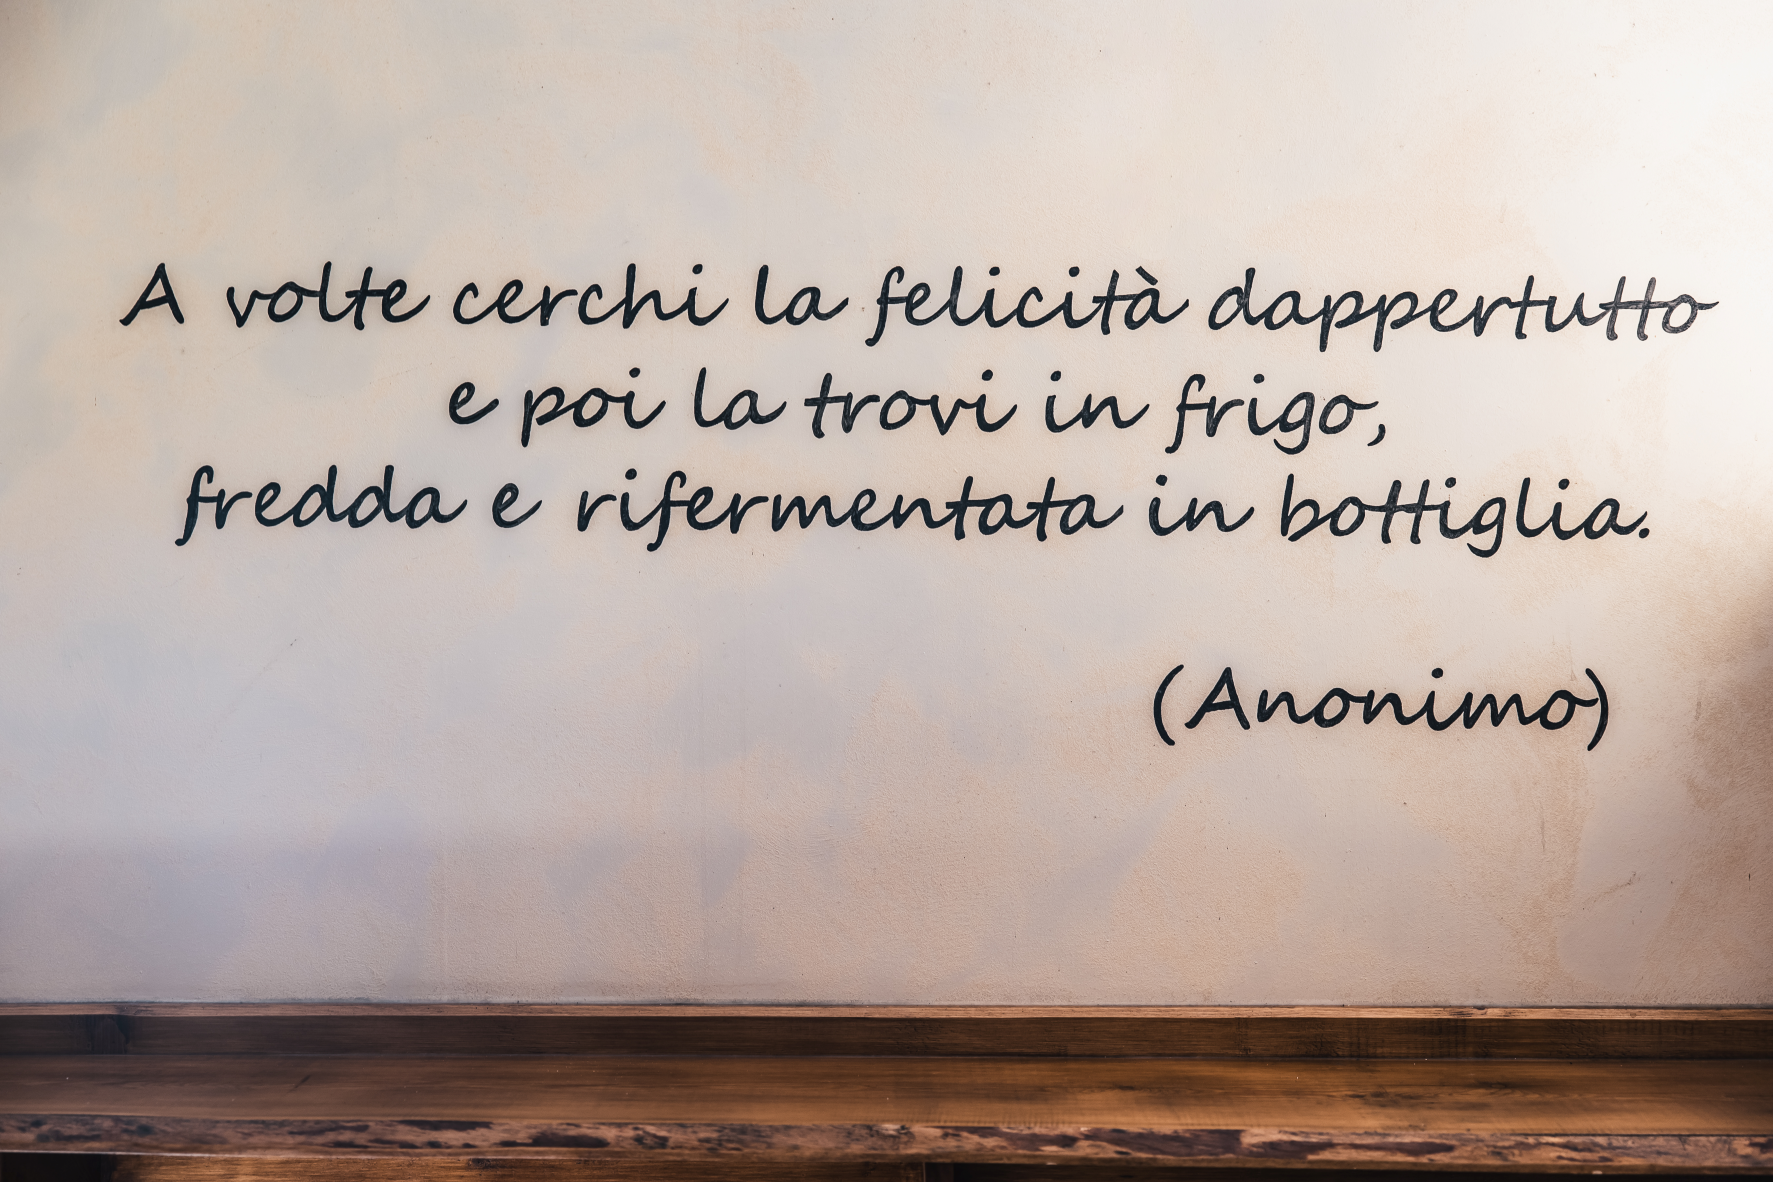 A volte cerchi la felicità dappertutto
e poi la trovi in frigo,
fredda e rifermentata in bottiglia.
(Anonimo)